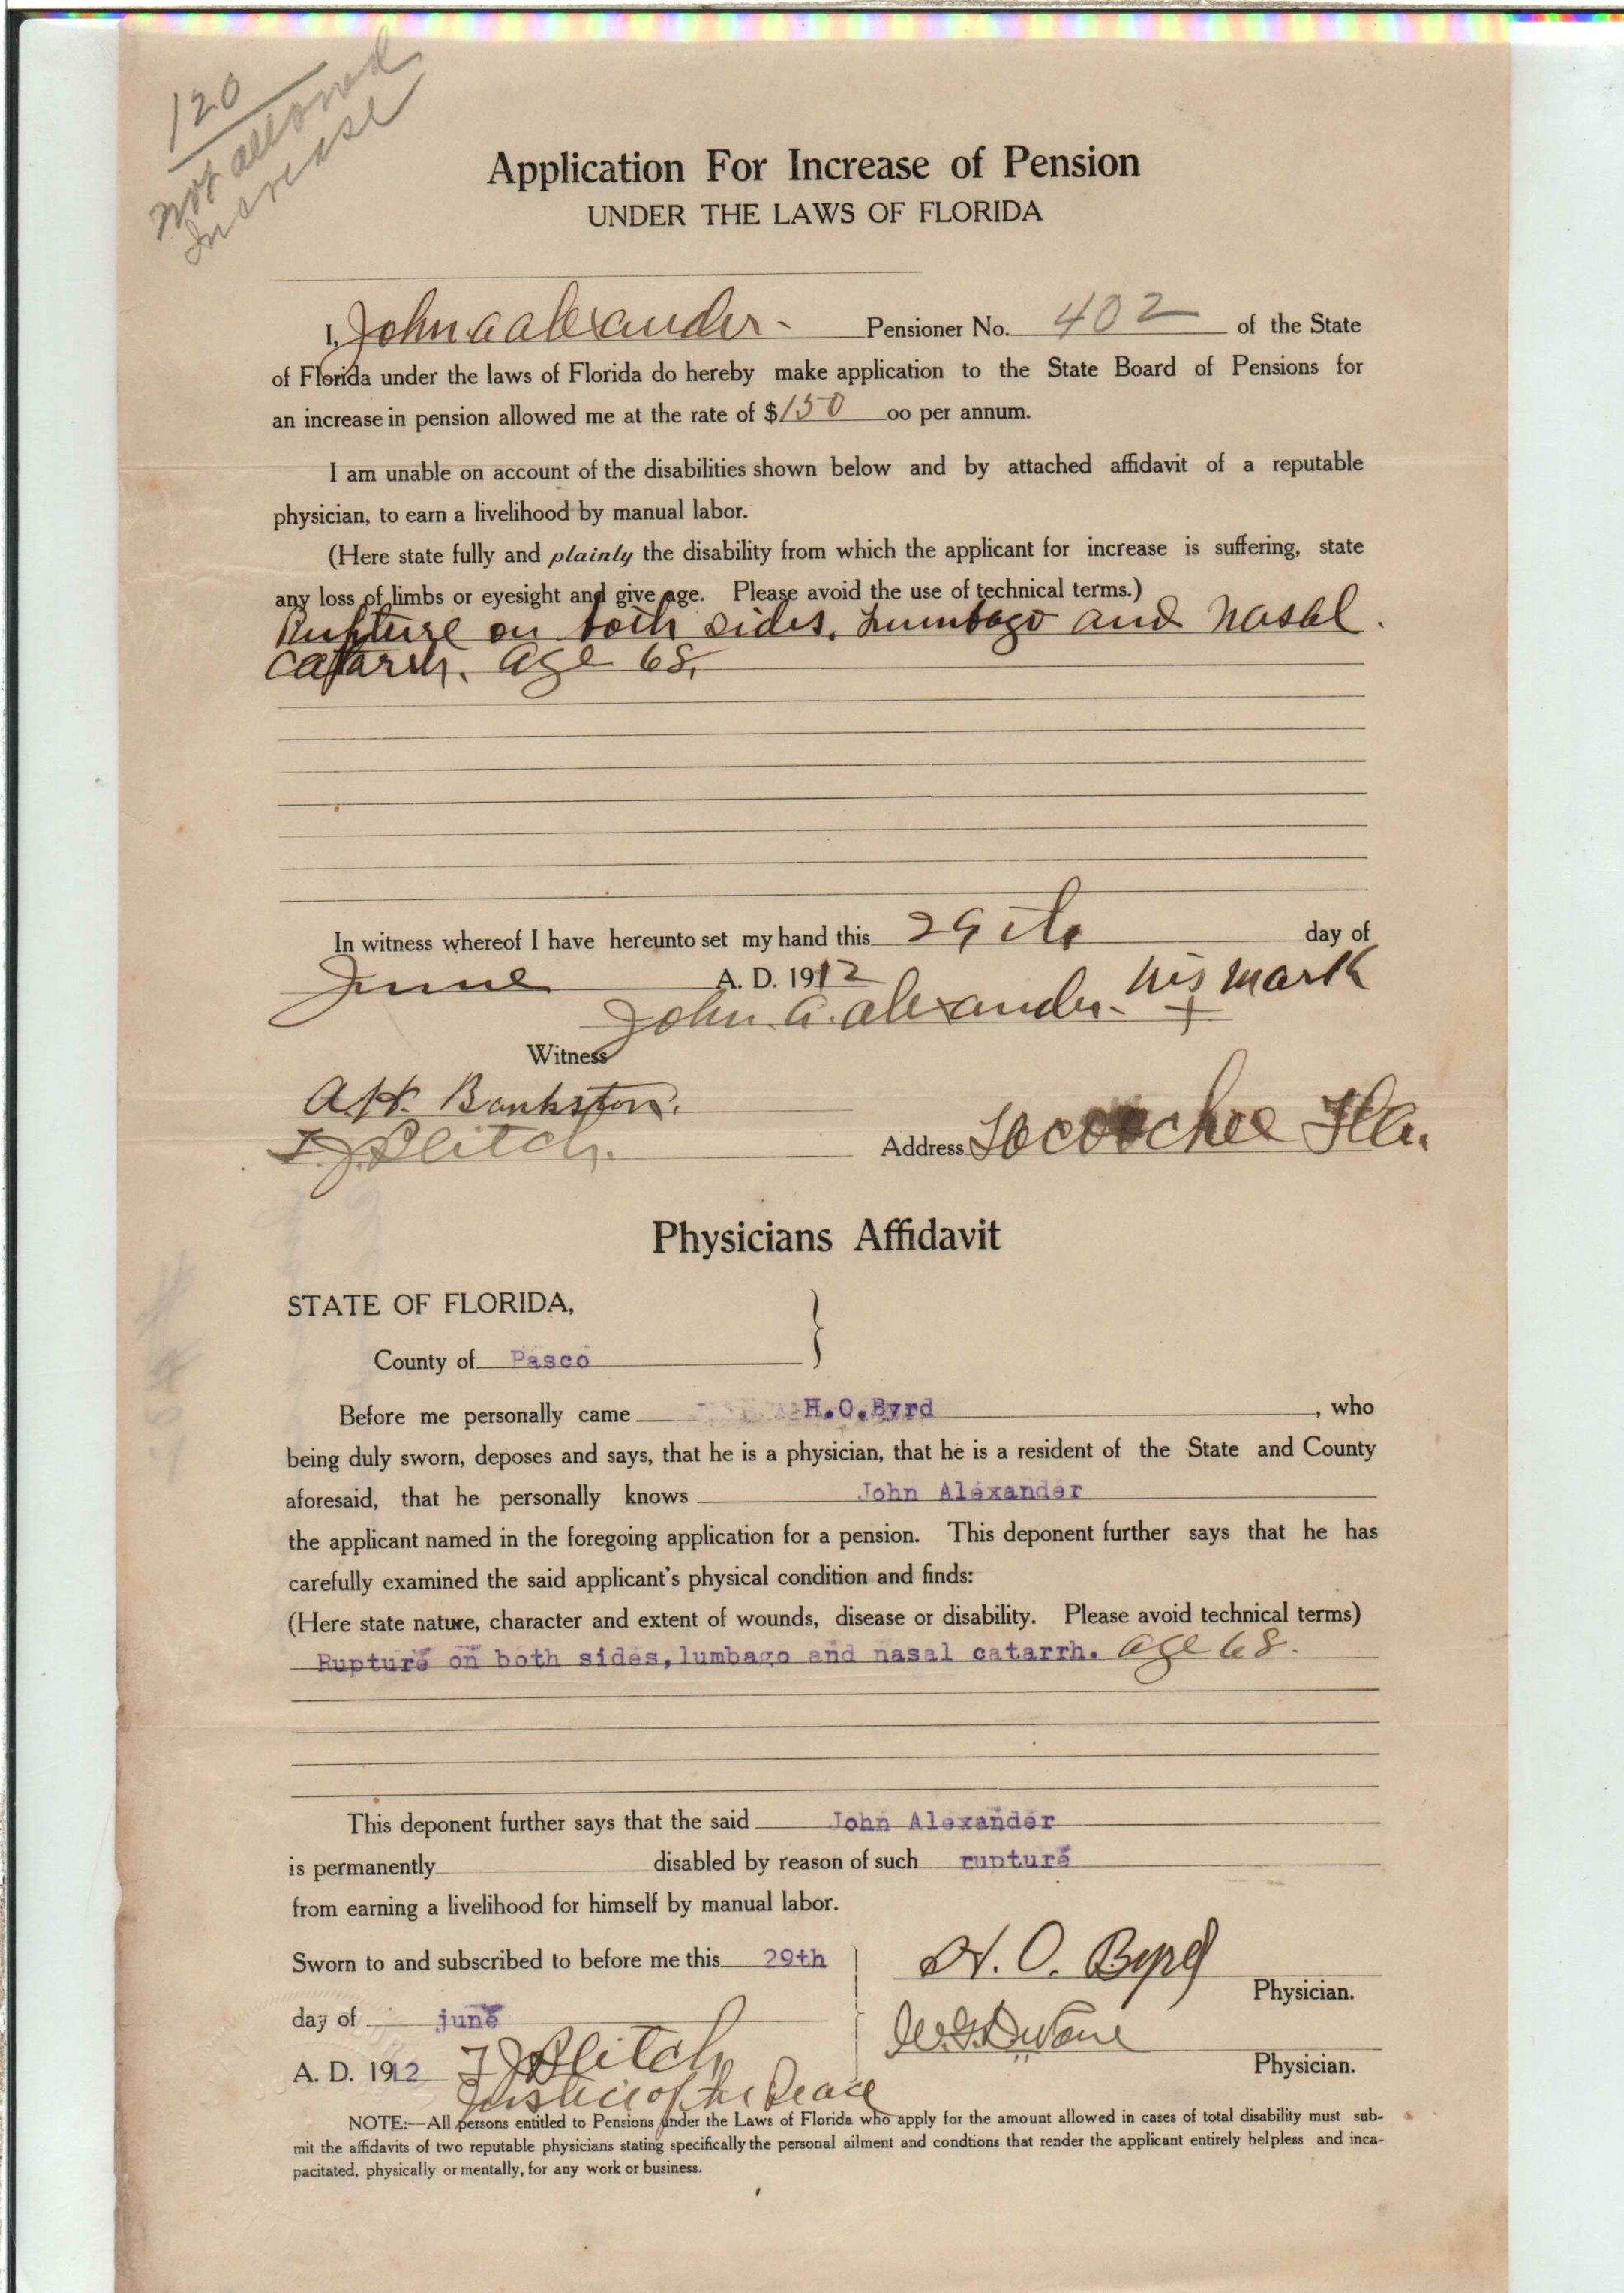 120
not allowed
Increase
Application For Increase of Pension
UNDER THE LAWS OF FLORIDA
I, John A Alexander- Pensioner No. 402 of the State
of Florida under the laws of Florida do hereby make application to the State Board of Pensions for
an increase in pension allowed me at the rate of $150 oo per annum.
I am unable on account of the disabilities shown below and by attached affidavit of a reputable
physician, to earn a livelihood by manual labor.
(Here state fully and plainly the disability from which the applicant for increase is suffering, state
any loss of limbs or eyesight and give age. Please avoid the use of technical terms.)
Rupture on both sides, Lumbago and Nasal
catarrh. age 68,
In witness whereof I have hereunto set my hand this 29th day of
June A. D. 1912
John A. Alexander. his mark +
Witness
A.H. Bankston.
T J Blitch. Address Lacoochee Fla.
Physicians Affidavit
STATE OF FLORIDA,
County of Pasco
Before me personally came H.O.Byrd, who
being duly sworn, deposes and says, that he is a physician, that he is a resident of the State and County
aforesaid, that he personally knows John Alexander
the applicant named in the foregoing application for a pension. This deponent further says that he has
carefully examined the said applicant's physical condition and finds:
(Here state nature, character and extent of wounds, disease or disability. Please avoid technical terms)
Rupture on both sides, lumbago and nasal catarrh. age 68.
This deponent further says that the said John Alexander
is permanently disabled by reason of such rupture
from earning a livelihood for himself by manual labor.
Sworn to and subscribed to before me this 29th H. O. Byrd
Physician.
day of june
A. D. 1912 T J Blitch Physician.
Justice of the Peace
NOTE:—All persons entitled to Pensions under the Laws of Florida who apply for the amount allowed in cases of total disability must sub-
mit the affidavits of two reputable physicians stating specifically the personal ailment and condtions that render the applicant entirely helpless and inca-
pacitated, physically or mentally, for any work or business.